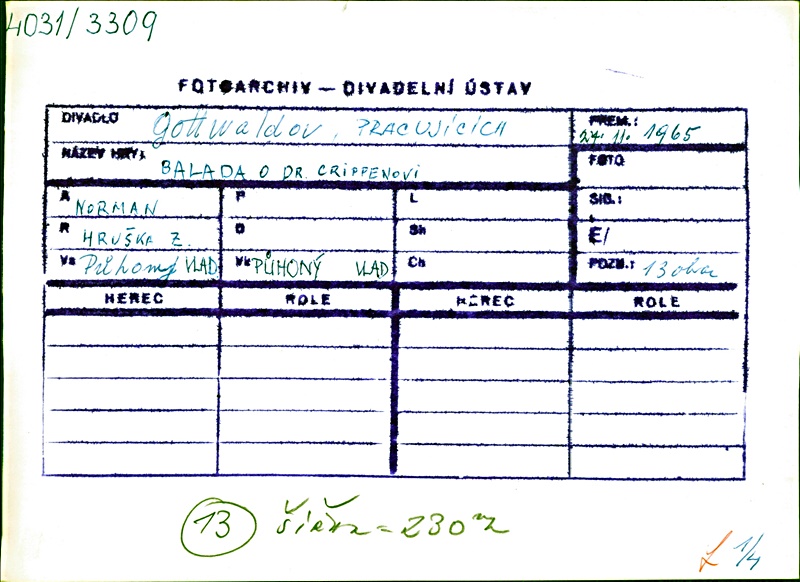 4031/3309
FOTOARCHIV — DIVADELNÍ ÚSTAV
DIVADLO Gottwaldov, PRACUJÍCÍCH
PREM.: 24. 11. 1965
NÁZEV HRY: BALADA O DR. CRIPPENOVI
FOTO
A NORMAN P L SIG.:
R HRUŠKA Z. D Sh E/
Vs Půhoný VLAD Vk PŮHONÝ VLAD. Ch POZN.: 13
HEREC ROLE HEREC ROLE
13 šířka = 230
L 1/4